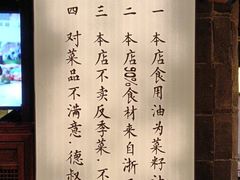 一 本店食用油为菜籽油
二 本店90%食材来自浙
三 本店不卖反季菜·不
四 对菜品不满意·德叔